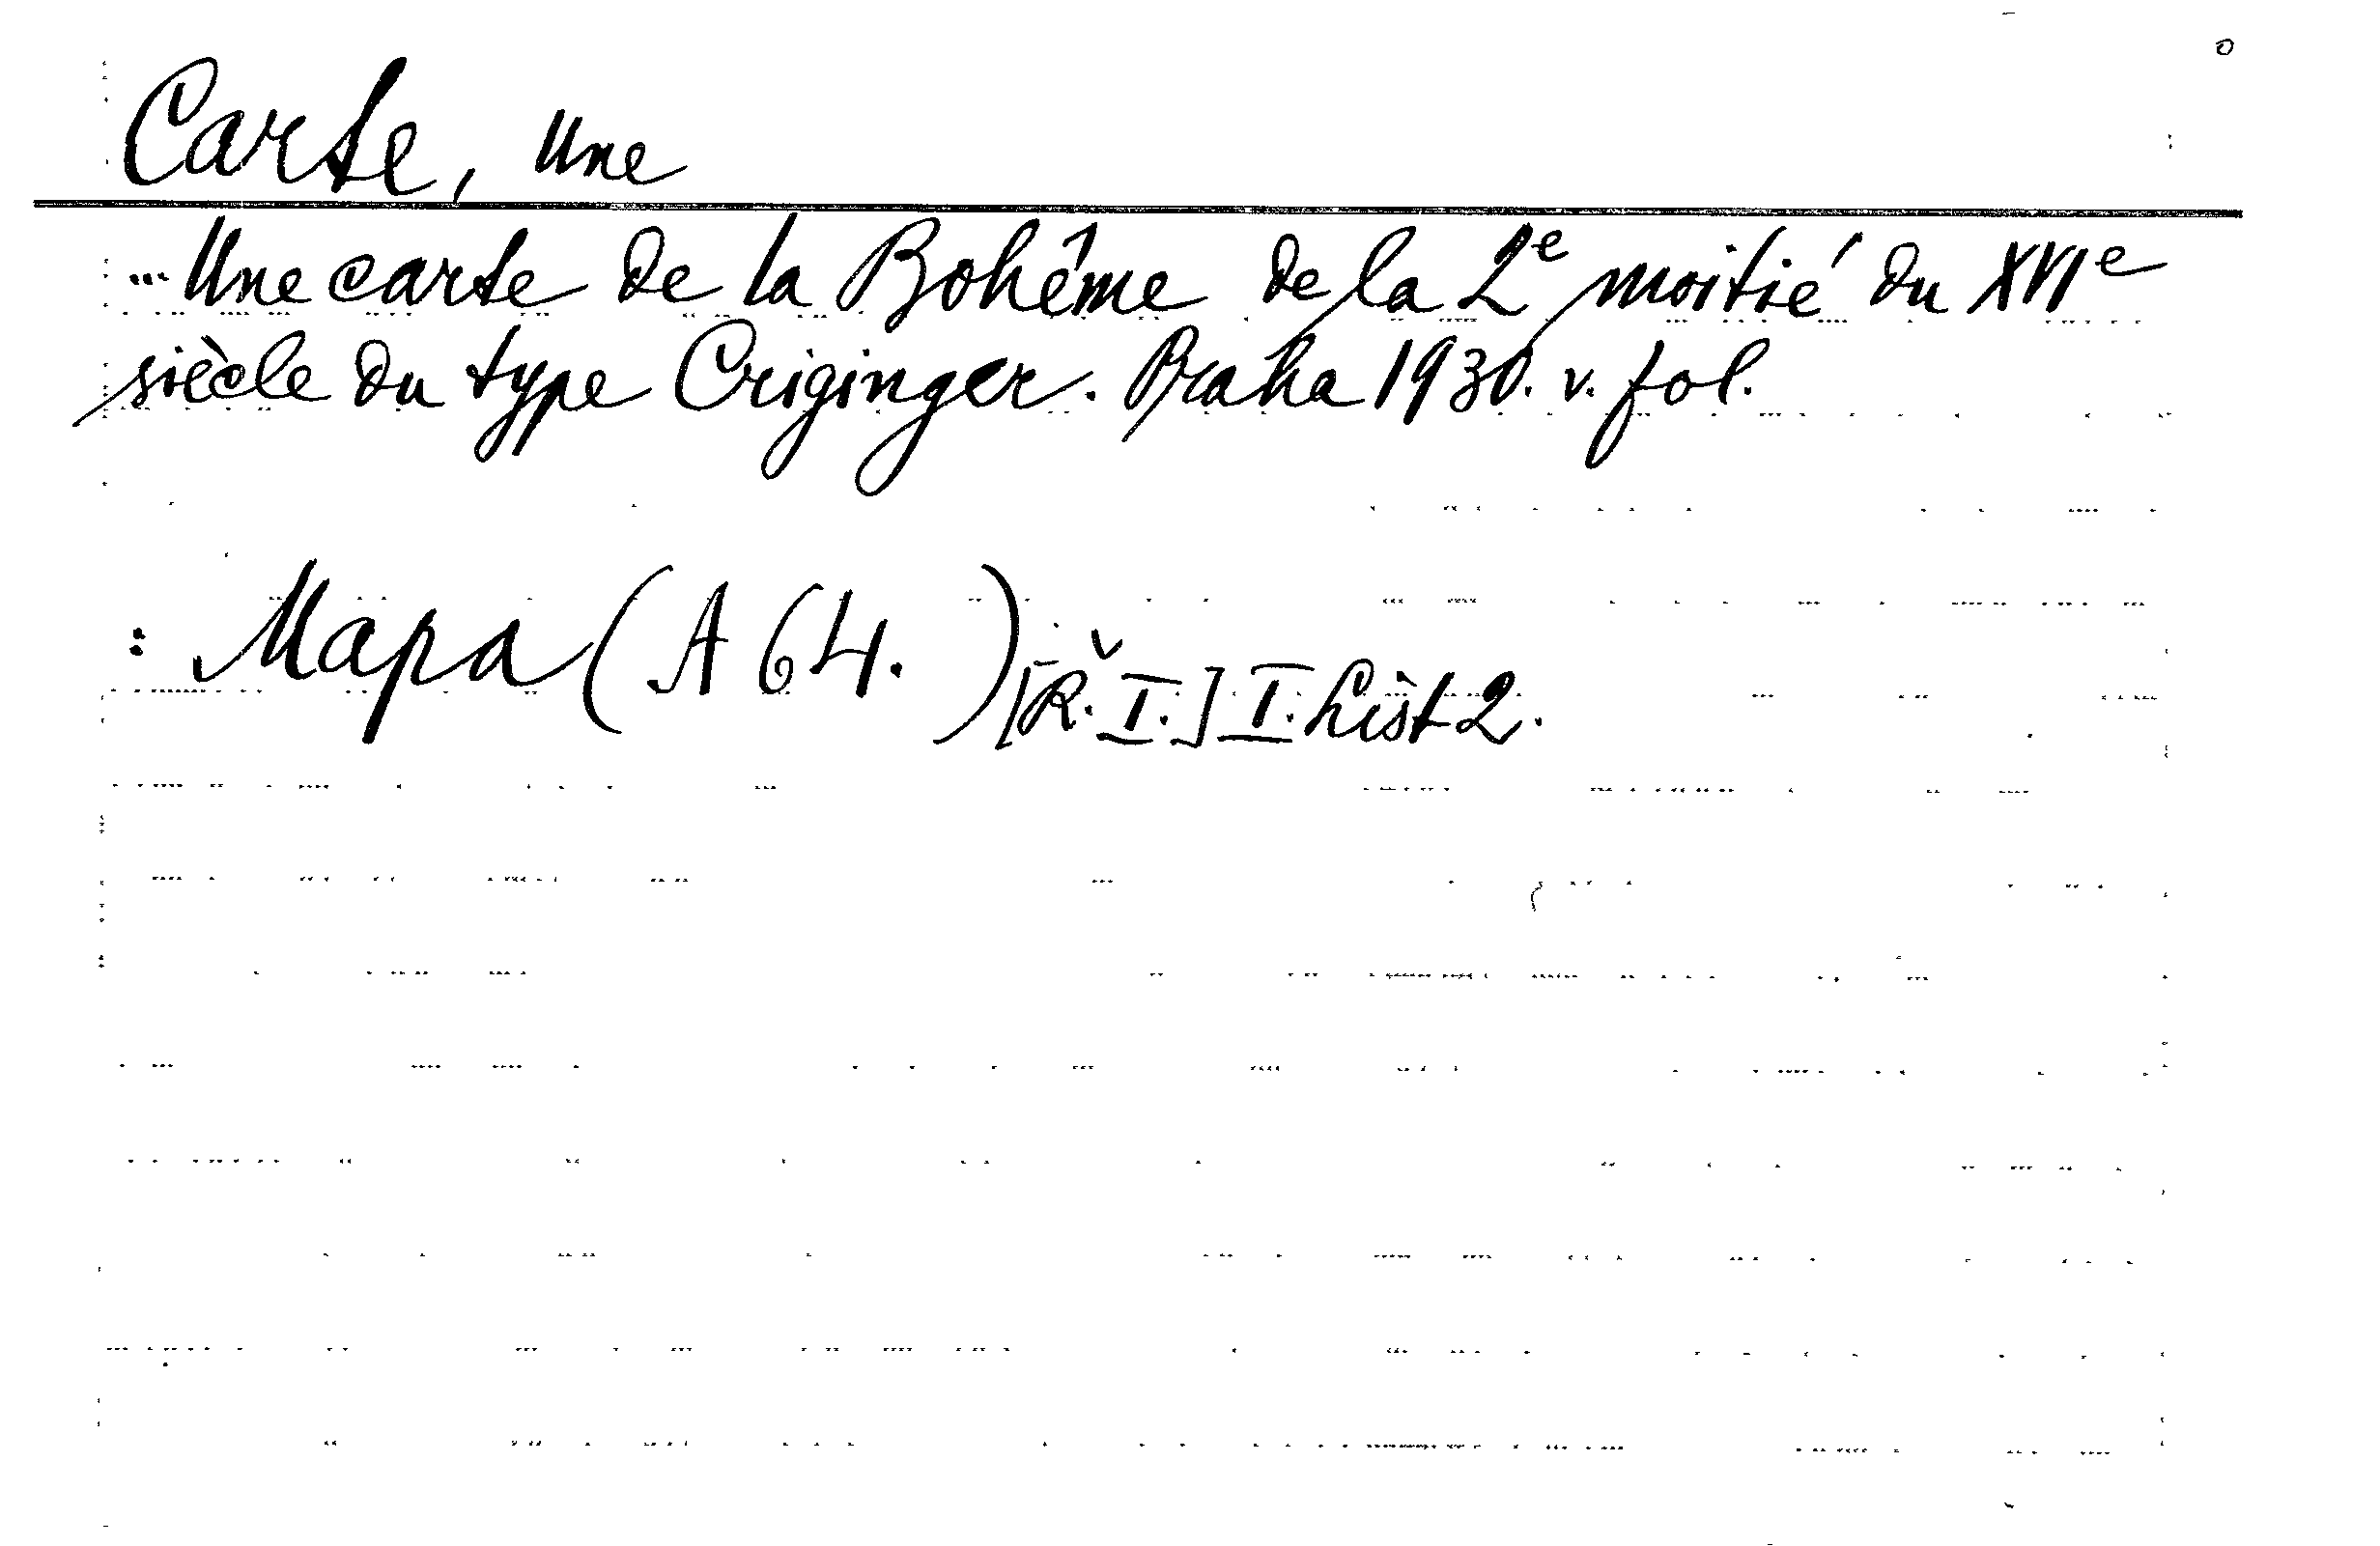 Carte, une
... Une carte de la Bohême de la 2e moitié du XVIe
siècle du type Criginger. Praha 1930. v. fol.
: Mapa (A 64. ) [Ř. I.] I. List 2.